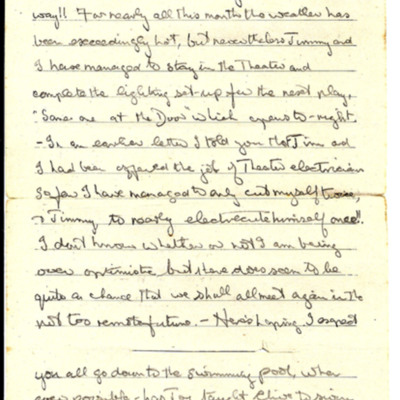 way!! For nearly all this month the weather has
been exceedingly hot, but nevertheless Jimmy and
I have managed to stay in the Theater and
complete the lighting set-up for the next play,
"Some one at the Door" which opens to-night.
- In an earlier letter I told you that Jim and
I had been offered the job of Theater electrician
So far I have managed to only cut myself twice,
& Jimmy to nearly electrocute himself once!!
I don't know whether or not I am being
over optimistic but there does seem to be
quite a chance that we shall all meet again in the
not too remote future. - Here's hoping. I expect
you all go down to the swimming pool, when
ever possible - has Joe taught Clive to swim